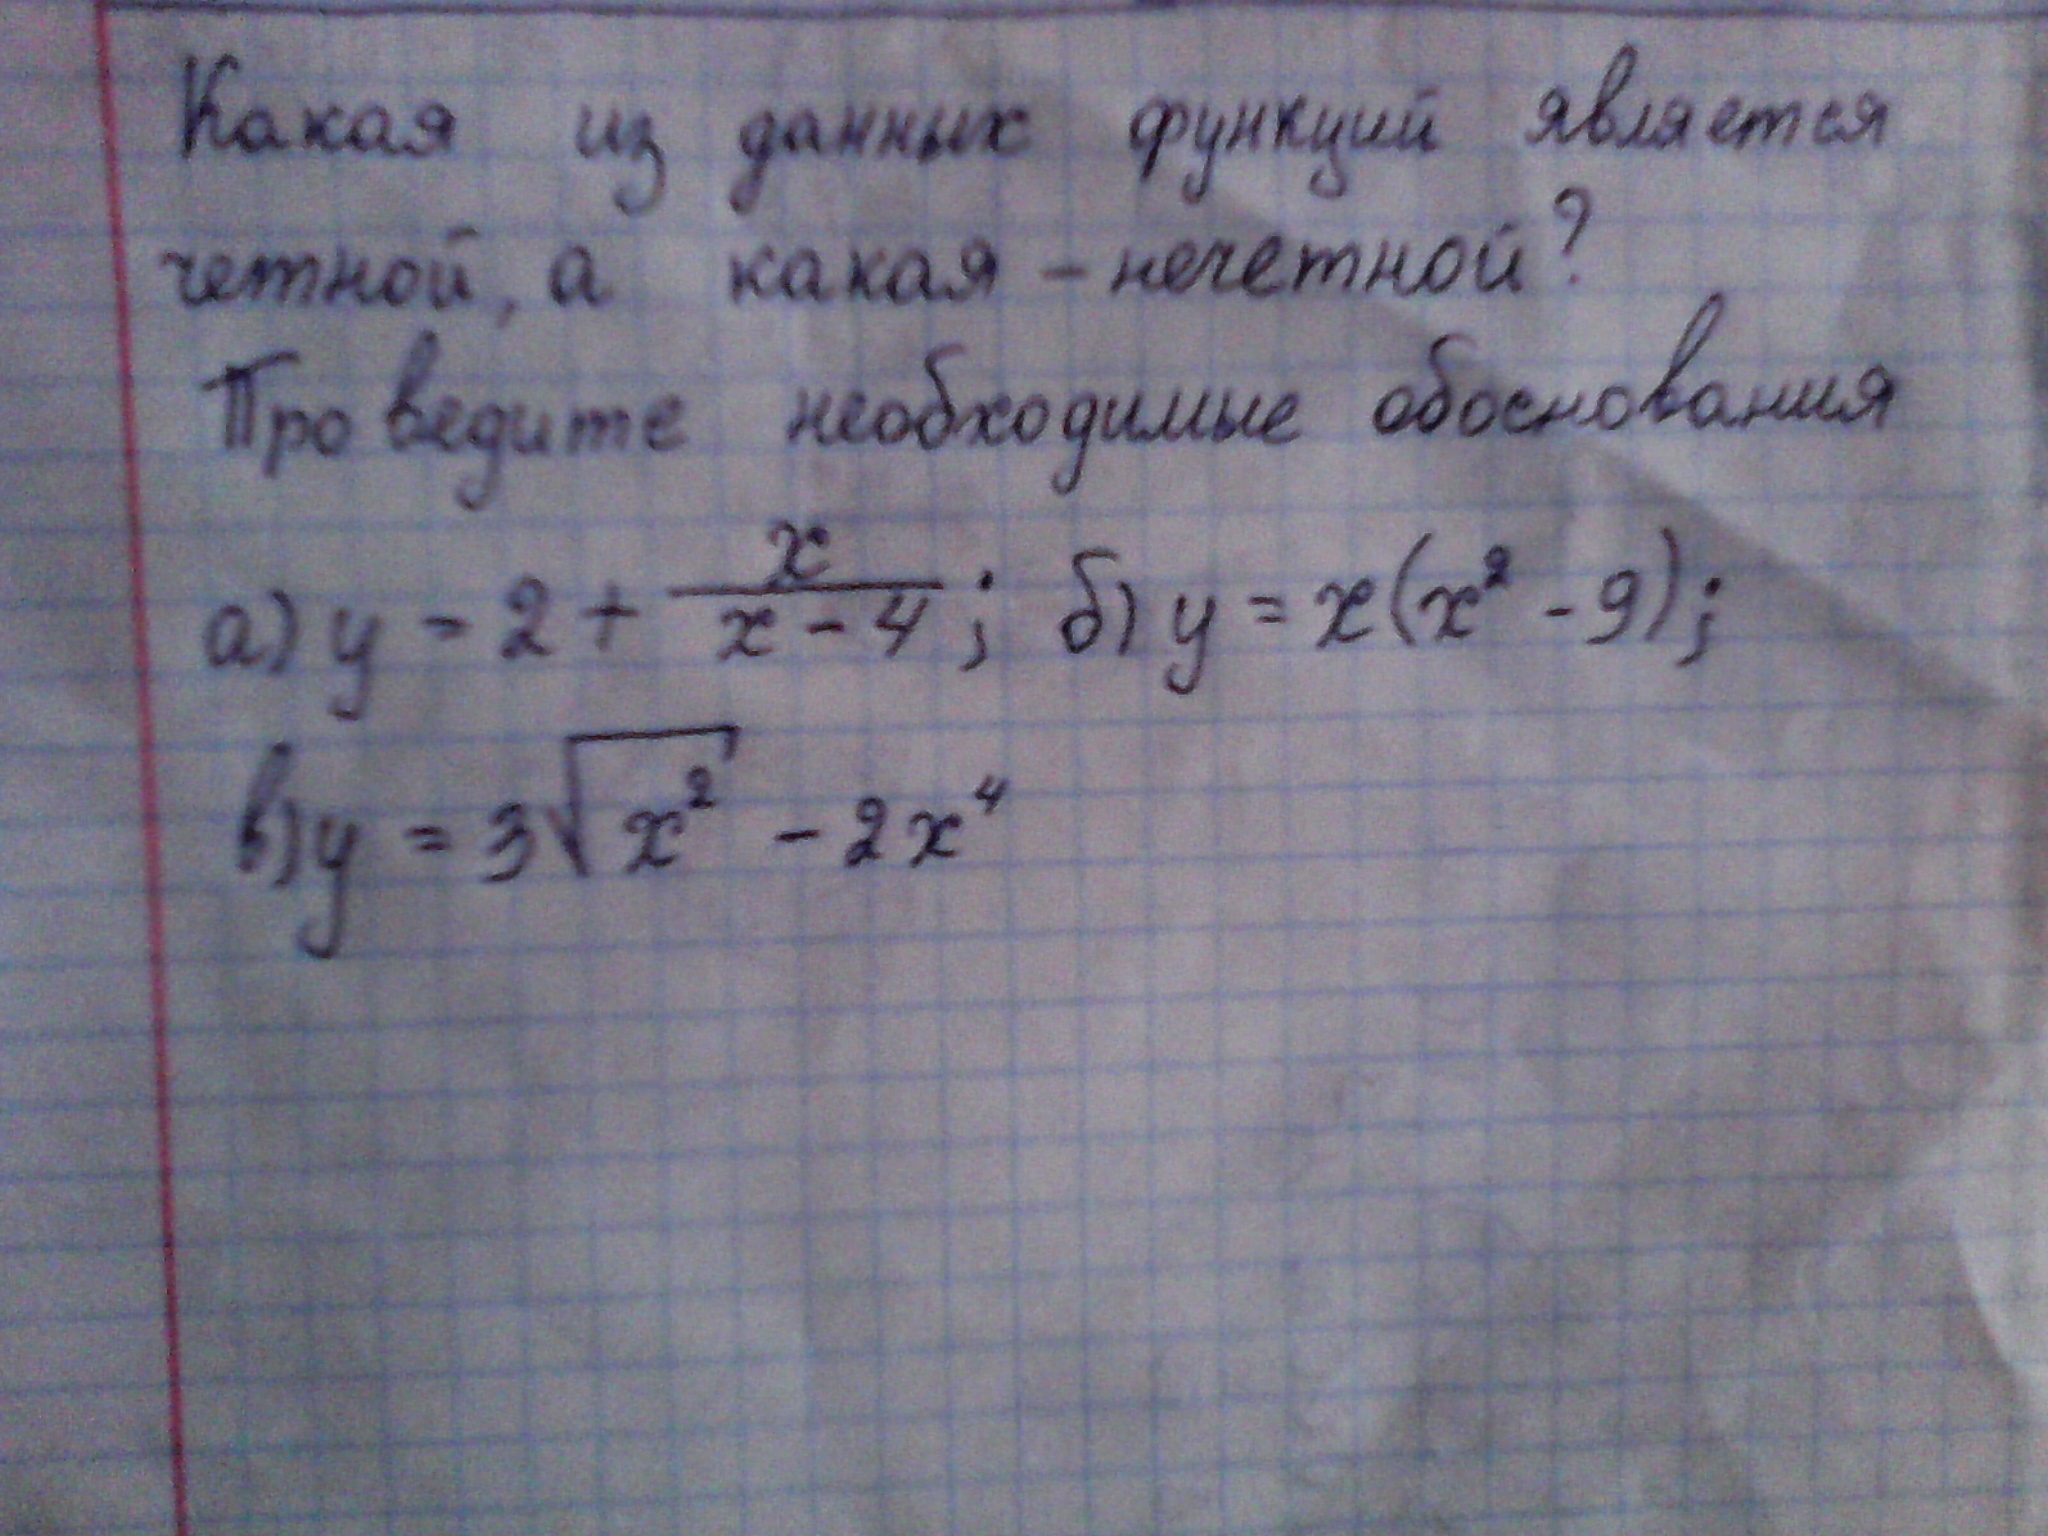 Какая из данных функций является
четной, а какая - нечетной?
Проведите необходимые обоснования
а) y = 2 + x/(x - 4); б) y = x(x² - 9);
в) y = 3√x² - 2x⁴